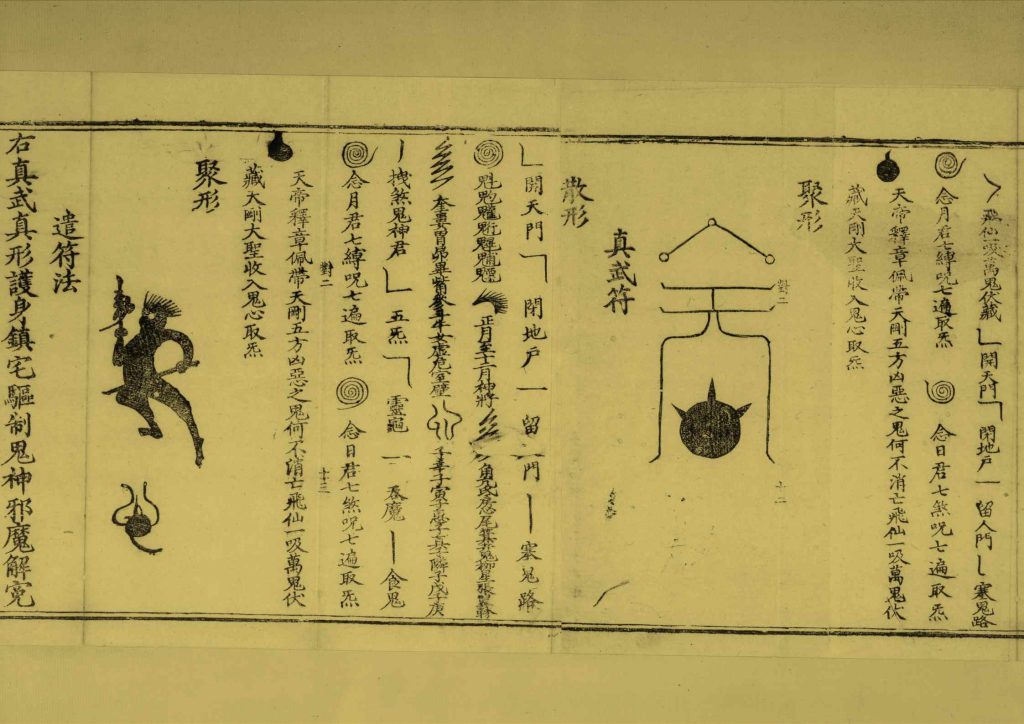 飛仙一吸萬鬼伏藏 開天門 閉地戶 留人門 塞鬼路
念月君七縛呪七遍取炁 念日君七煞呪七遍取炁
天帝釋章佩帶天剛五方凶惡之鬼何不消亡飛仙一吸萬鬼伏
藏天剛大聖收入鬼心取炁
聚形
對二
十二
真武符
散形
開天門 閉地戶 留 門 塞鬼路
正月至十二月神將
奎婁胃昴畢觜參斗牛女虛危室壁
拽煞鬼神君 五炁 靈龜 吞魔 食鬼
念月君七縛呪七遍取炁 念日君七煞呪七遍取炁
對二
十三
天帝釋章佩帶天剛五方凶惡之鬼何不消亡飛仙一吸萬鬼伏
藏天剛大聖收入鬼心取炁
聚形
遣符法
右真武真形護身鎮宅驅制鬼神邪魔解冤